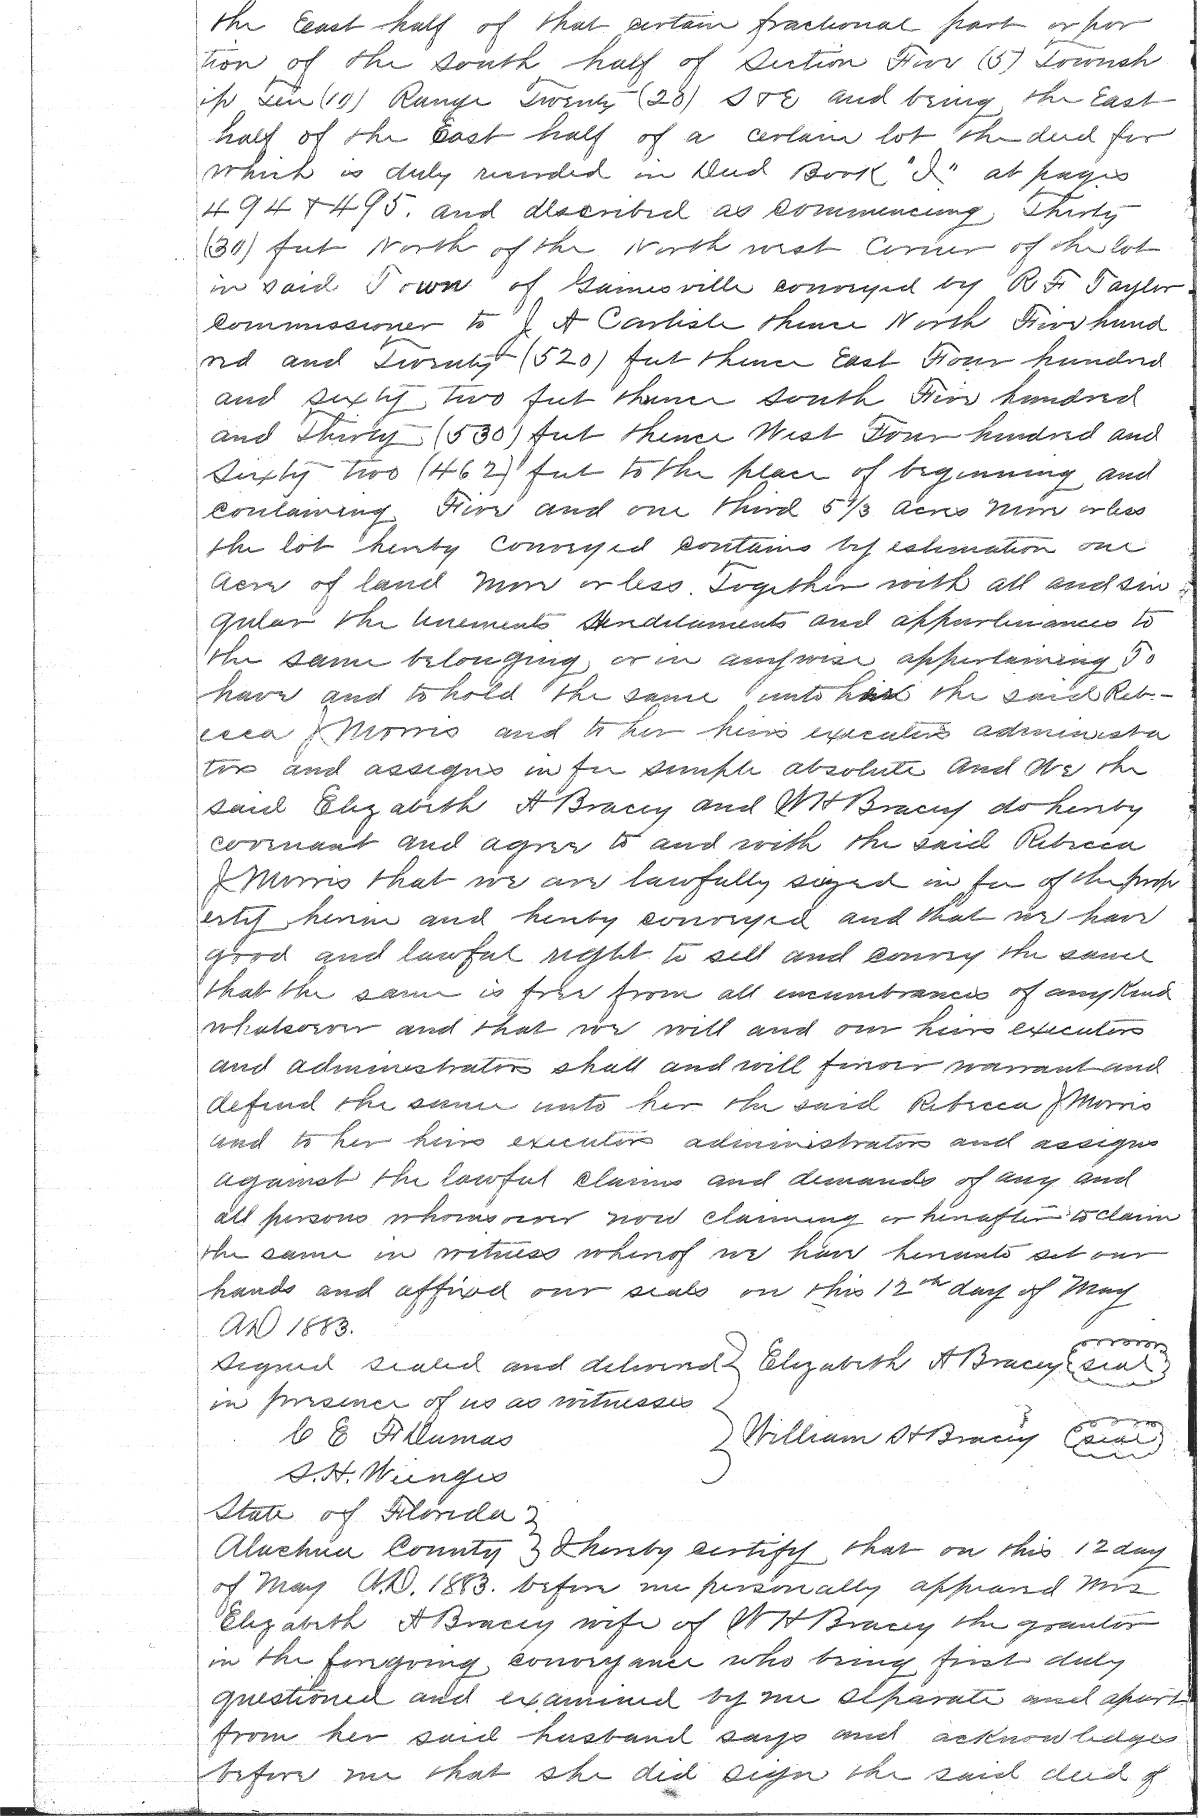 the East half of that certain fractional part or por
tion of the South half of Section Five (5) Townsh
ip Ten (10) Range Twenty (20) S & E and being the East
half of the East half of a certain lot the deed for
which is duly recorded in Deed Book "I" at pages
494 & 495. and described as commencing Thirty
(30) feet North of the North west Corner of the lot
in said Town of Gainesville conveyed by R F Taylor
Commissioner to J A Carlisle thence North Five hund
red and Twenty (520) feet thence East Four hundred
and sixty two feet thence South Five hundred
and Thirty (530) feet thence West Four hundred and
Sixty two (462) feet to the place of beginning and
containing Five and one third 5 1/3 acres more or less
the lot hereby conveyed contains by estimation one
Acre of land more or less. Together with all and sin
gular the tenements Hereditaments and appurtenances to
the same belonging or in anywise appertaining To
have and to hold the same unto her the said Reb-
ecca J Morris and to her heirs executors administra
tors and assigns in fee simple absolute And We the
said Elizabeth A Bracey and W H Bracey do hereby
covenant and agree to and with the said Rebecca
J Morris that we are lawfully siezed in fee of the prop
erty herein and hereby conveyed and that we have
good and lawful right to sell and convey the same
that the same is free from all encumbrances of any Kind
whatsoever and that we will and our heirs executors
and administrators shall and will forever warrant and
defend the same unto her the said Rebecca J Morris
and to her heirs executors administrators and assigns
against the lawful claims and demands of any and
all persons whomsoever now claiming or hereafter to claim
the same in witness whereof we have hereunto set our
hands and affixed our seals on this 12th day of May
AD 1883.
Signed sealed and delivered Elizabeth A Bracey seal
in presence of us as witnesses
C E F Dumas William H Bracey seal
S. H. Wienges
State of Florida
Alachua County I hereby certify that on this 12 day
of May A.D. 1883. before me personally appeared Mrs
Elizabeth A Bracey wife of W H Bracey the grantor
in the foregoing conveyance who being first duly
questioned and examined by me separate and apart
from her said husband says and acknowledges
before me that she did sign the said deed of